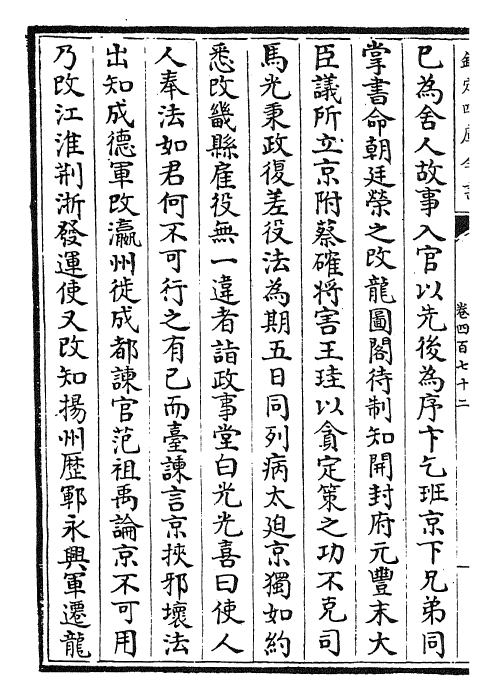 欽定四庫全書
卷四百七十二
已為舍人故事入官以先後為序卞乞班京下兄弟同
掌書命朝廷榮之改龍圖閣待制知開封府元豐末大
臣議所立京附蔡確将害王珪以貪定策之功不克司
馬光秉政復差役法為期五日同列病太迫京獨如約
悉改畿縣雇役無一違者詣政事堂白光光喜曰使人
人奉法如君何不可行之有已而臺諫言京挾邪壞法
出知成德軍改瀛州徙成都諫官范祖禹論京不可用
乃改江淮荆浙發運使又改知揚州歴鄆永興軍遷龍